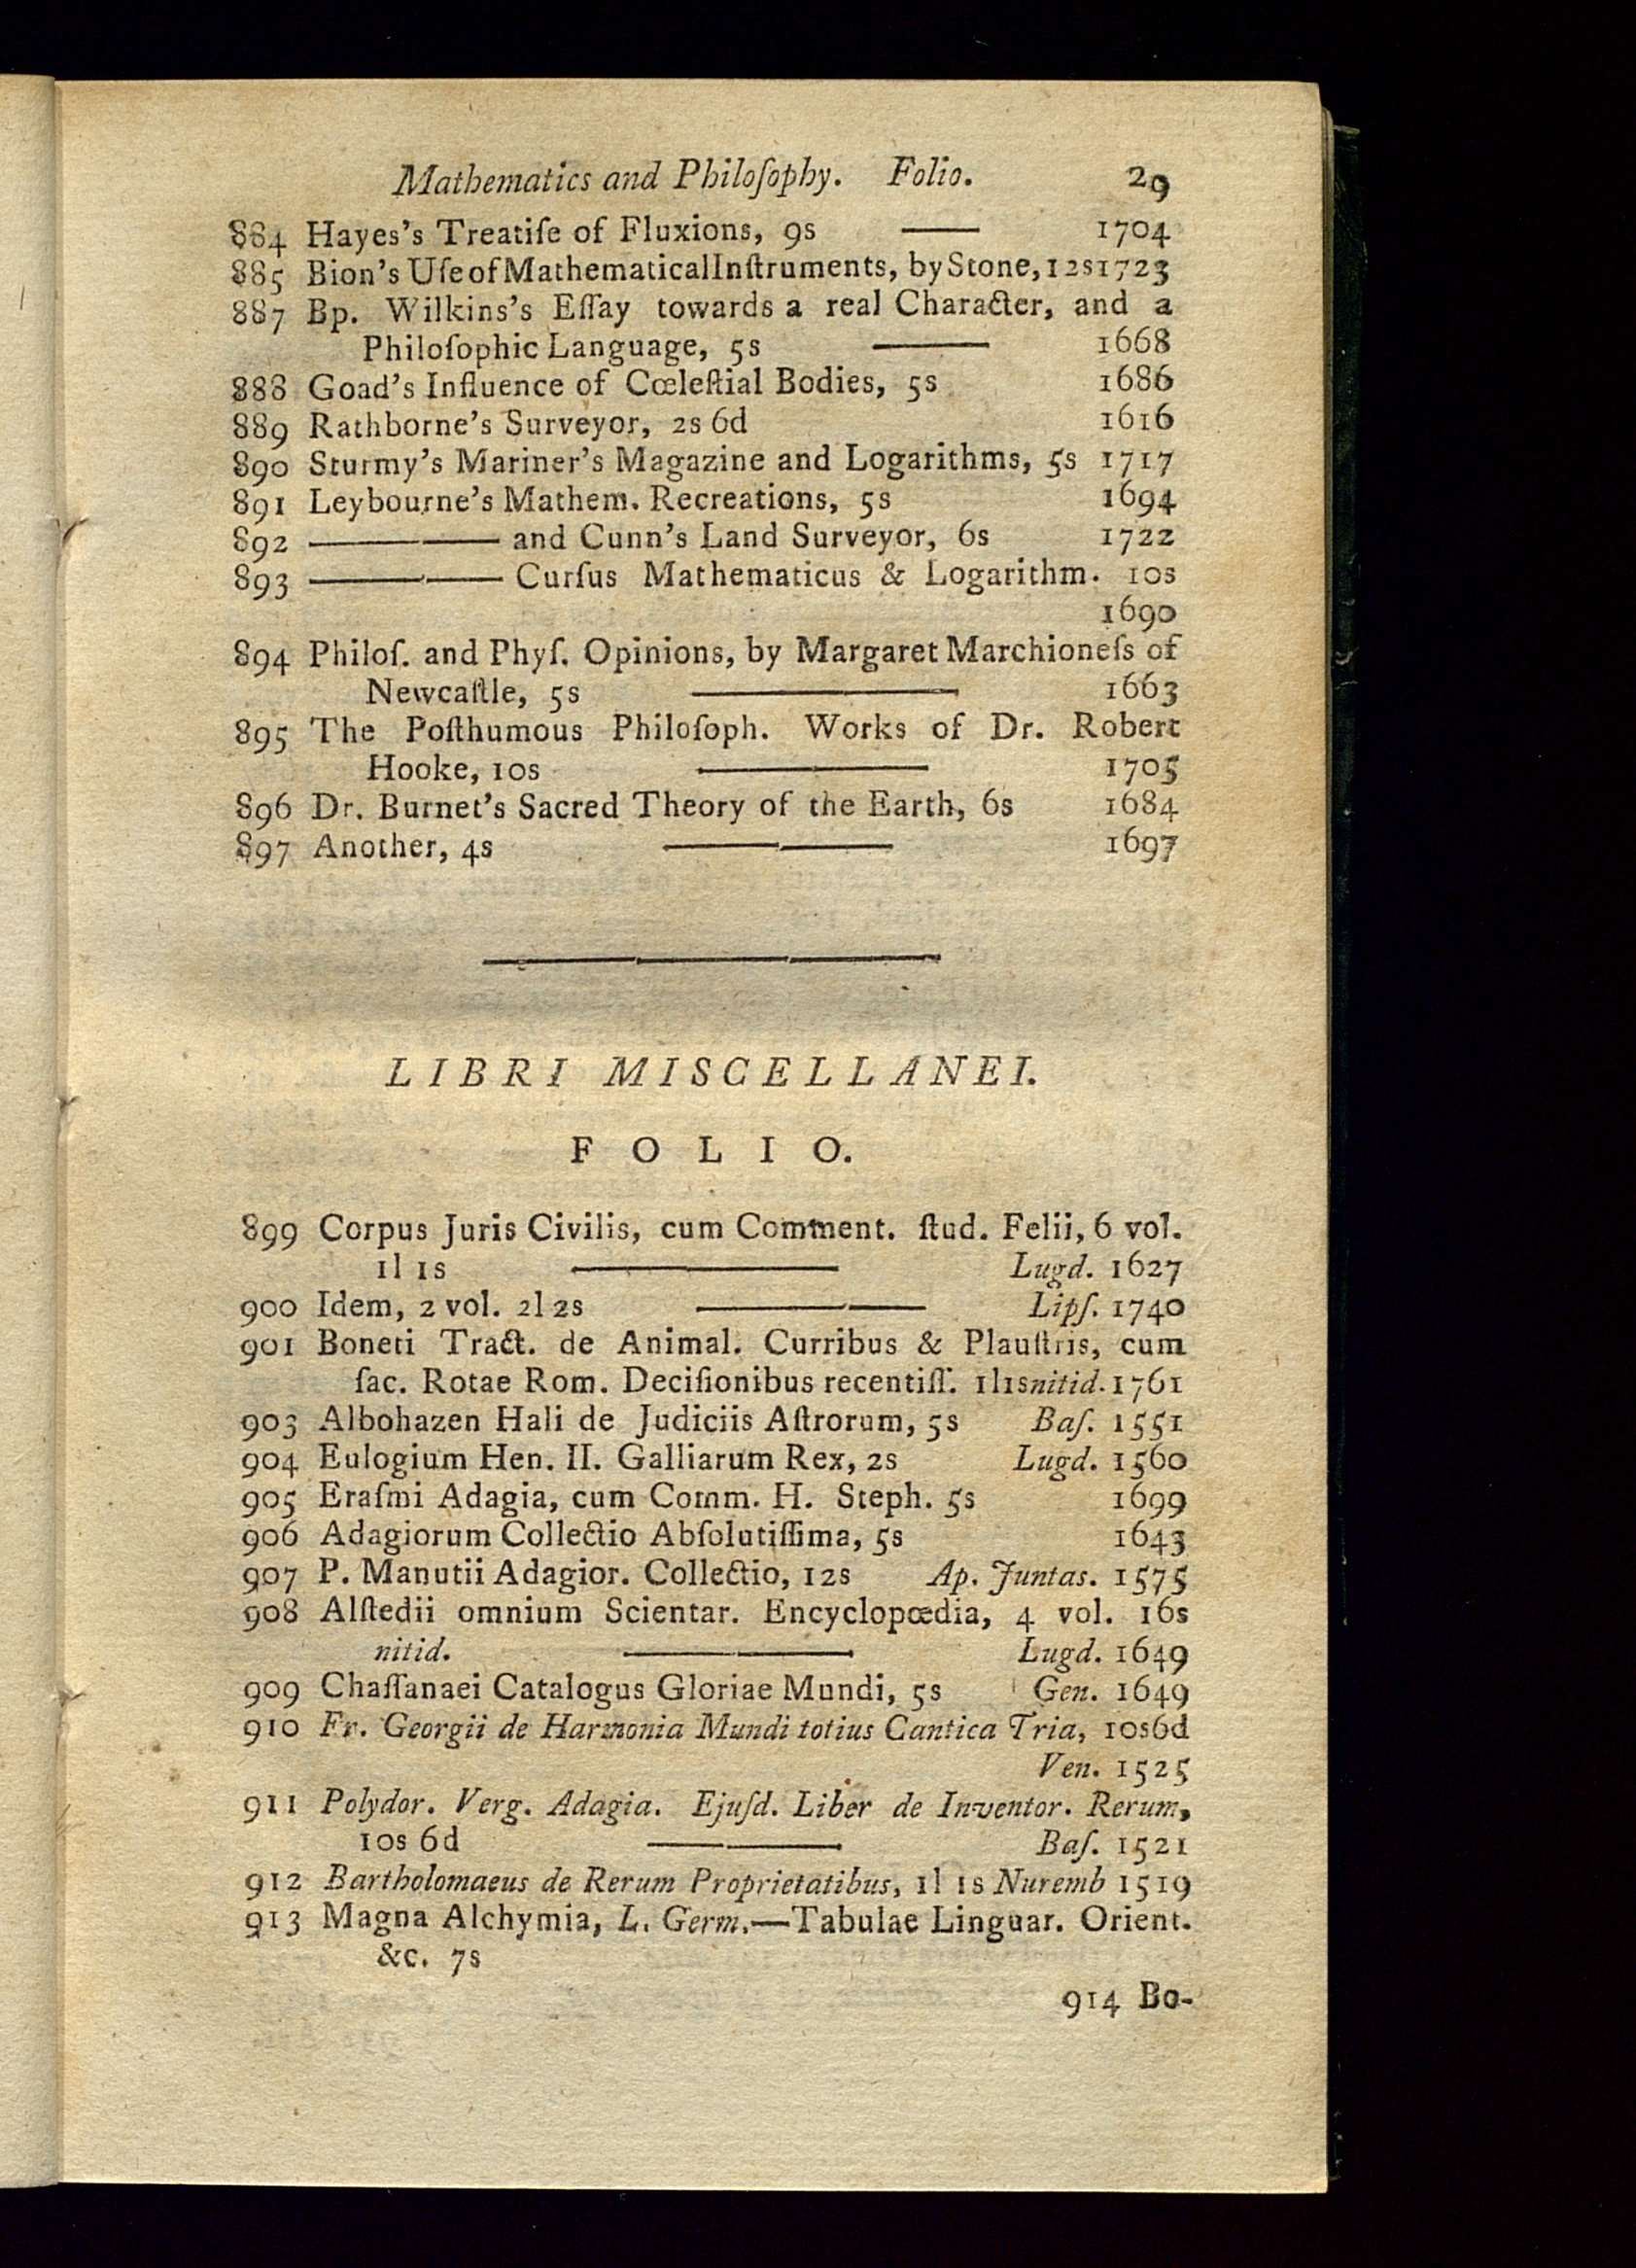 Mathematics and Philoſophy. Folio. 29
884 Hayes's Treatiſe of Fluxions, 9s —— 1704
885 Bion's Uſe of Mathematical Inſtruments, by Stone, 12s 1723
887 Bp. Wilkins's Eſſay towards a real Character, and a
Philoſophic Language, 5s —— 1668
888 Goad's Influence of Cœleſtial Bodies, 5s 1686
889 Rathborne's Surveyor, 2s 6d 1616
890 Sturmy's Mariner's Magazine and Logarithms, 5s 1717
891 Leybourne's Mathem. Recreations, 5s 1694
892 —— and Cunn's Land Surveyor, 6s 1722
893 —— Curſus Mathematicus & Logarithm. 10s
1690
894 Philoſ. and Phyſ. Opinions, by Margaret Marchioneſs of
Newcaſtle, 5s —— 1663
895 The Poſthumous Philoſoph. Works of Dr. Robert
Hooke, 10s —— 1705
896 Dr. Burnet's Sacred Theory of the Earth, 6s 1684
897 Another, 4s —— 1697
LIBRI MISCELLANEI.
FOLIO.
899 Corpus Juris Civilis, cum Comment. ſtud. Felii, 6 vol.
1l 1s —— Lugd. 1627
900 Idem, 2 vol. 2l 2s —— Lipſ. 1740
901 Boneti Tract. de Animal. Curribus & Plauſtris, cum
ſac. Rotae Rom. Deciſionibus recentiſſ. 1l 1s nitid. 1761
903 Albohazen Hali de Judiciis Aſtrorum, 5s Baſ. 1551
904 Eulogium Hen. II. Galliarum Rex, 2s Lugd. 1560
905 Eraſmi Adagia, cum Comm. H. Steph. 5s 1699
906 Adagiorum Collectio Abſolutiſſima, 5s 1643
907 P. Manutii Adagior. Collectio, 12s Ap. Juntas. 1575
908 Alſtedii omnium Scientar. Encyclopœdia, 4 vol. 16s
nitid. —— Lugd. 1649
909 Chaſſanaei Catalogus Gloriae Mundi, 5s Gen. 1649
910 Fr. Georgii de Harmonia Mundi totius Cantica Tria, 10s6d
Ven. 1525
911 Polydor. Verg. Adagia. Ejuſd. Liber de Inventor. Rerum,
10s 6d —— Baſ. 1521
912 Bartholomaeus de Rerum Proprietatibus, 1l 1s Nuremb 1519
913 Magna Alchymia, L. Germ.—Tabulae Linguar. Orient.
&c. 7s
914 Bo-